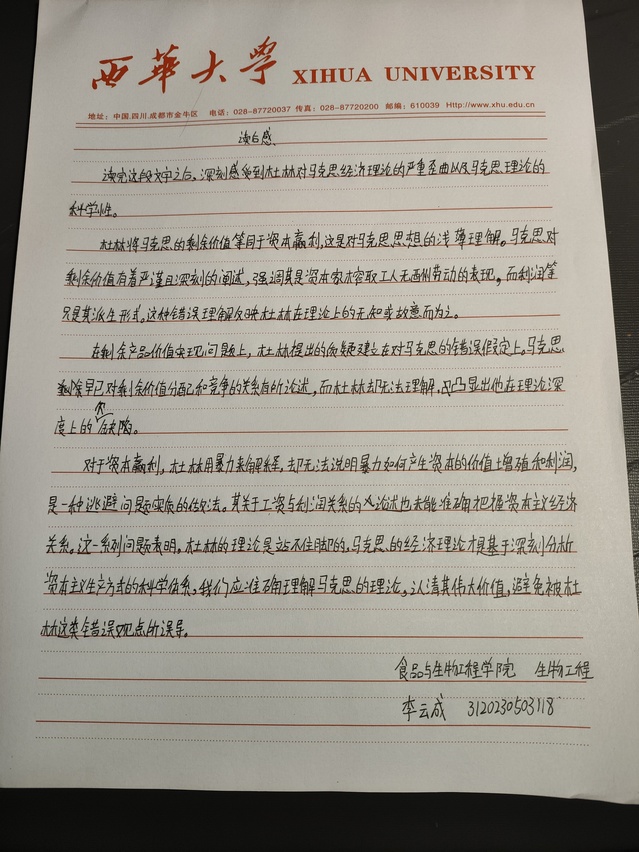 西華大学 XIHUA UNIVERSITY
地址：中国.四川.成都市金牛区 电话：028-87720037 传真：028-87720200 邮编：610039 Http://www.xhu.edu.cn
读后感、
读完这段文字之后、深刻感受到杜林对马克思经济理论的严重歪曲以及马克思理论的
科学性。
杜林将马克思的剩余价值等同于资本赢利，这是对马克思思想的浅薄理解。马克思对
剩余价值有着严谨且深刻的阐述，强调其是资本家榨取工人无酬劳动的表现，而利润等
只是其派生形式。这种错误理解反映杜林在理论上的无知或故意而为之。
在剩余产品价值实现问题上，杜林提出的质疑建立在对马克思的错误假定上。马克思
早已对剩余价值分配和竞争的关系有所论述，而杜林却无法理解，凸显出他在理论深
度上的缺陷。
对于资本赢利，杜林用暴力来解释，却无法说明暴力如何产生资本的价值增殖和利润，
是一种逃避问题实质的做法。其关于工资与利润关系的论述也未能准确把握资本主义经济
关系。这一系列问题表明。杜林的理论是站不住脚的，马克思的经济理论才是基于深刻分析
资本主义生产方式的科学体系，我们应准确理解马克思的理论，认清其伟大价值，避免被杜
林这类错误观点所误导。
食品与生物工程学院 生物工程
李云成 3120230503118